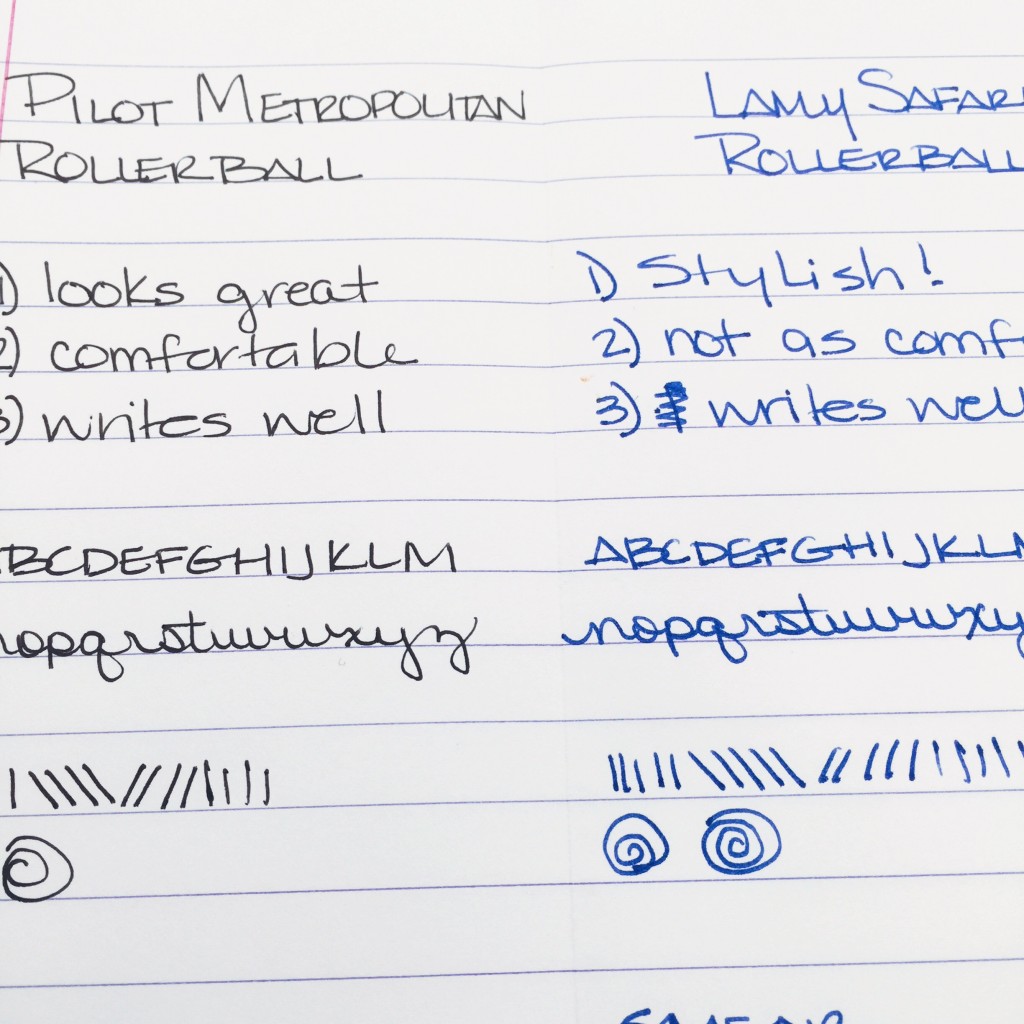 PILOT METROPOLITAN
ROLLERBALL
1) looks great
2) comfortable
3) writes well
BCDEFGHIJKLM
nopqrstuvwxyz
LAMY SAFARI
ROLLERBALL
1) Stylish!
2) not as comf
3) writes well
ABCDEFGHIJKLM
nopqrstuvwxy